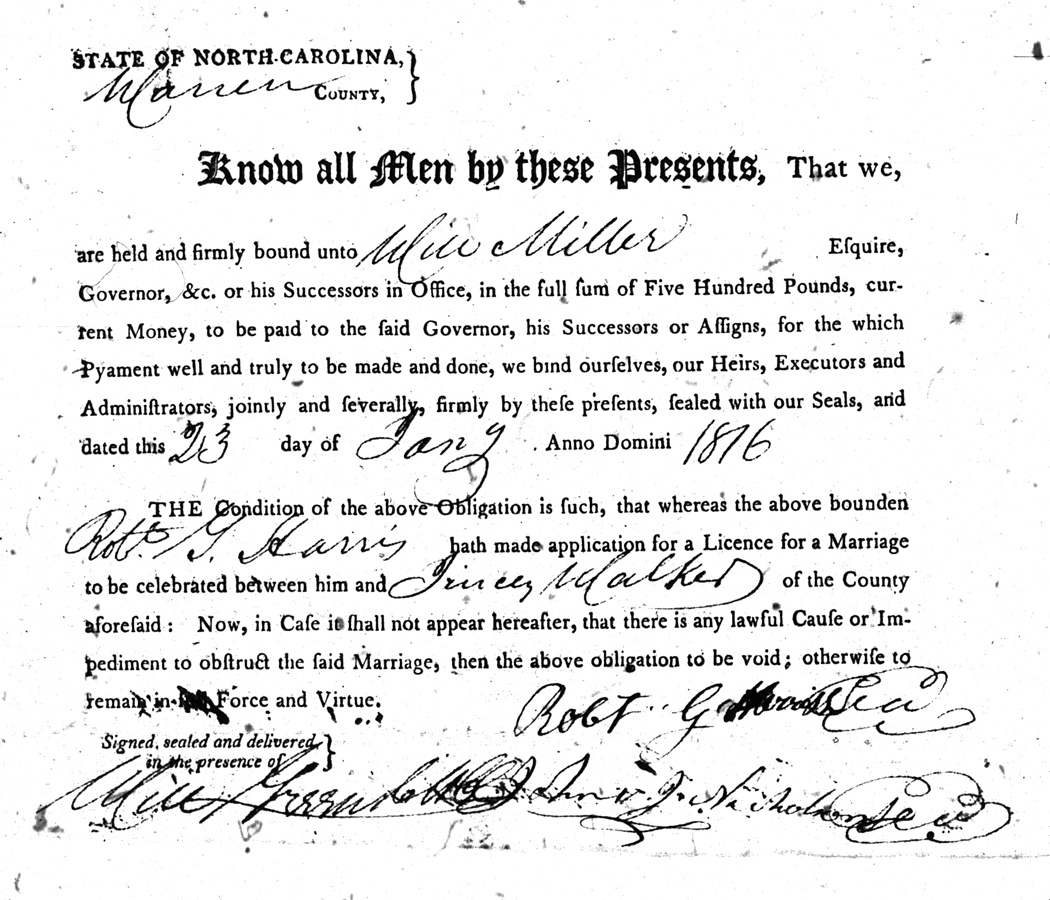 STATE OF NORTH-CAROLINA,
Warren COUNTY,
Know all Men by these Presents, That we,
are held and firmly bound unto Will Miller Eſquire,
Governor, &c. or his Successors in Office, in the full ſum of Five Hundred Pounds, cur-
rent Money, to be paid to the ſaid Governor, his Successors or Aſſigns, for the which
Pyament well and truly to be made and done, we bind ourſelves, our Heirs, Executors and
Adminiſtrators, jointly and ſeverally, firmly by theſe preſents, ſealed with our Seals, and
dated this 23 day of Jany . Anno Domini 1816
THE Condition of the above Obligation is ſuch, that whereas the above bounden
Robt. G. Harris hath made application for a Licence for a Marriage
to be celebrated between him and Walker of the County
aforeſaid : Now, in Caſe it ſhall not appear hereafter, that there is any lawful Cauſe or Im-
pediment to obſtruct the ſaid Marriage, then the above obligation to be void; otherwiſe to
remain in Force and Virtue.
Robt G Harris
Signed, sealed and delivered
in the presence of
Will Green J. Nicholson